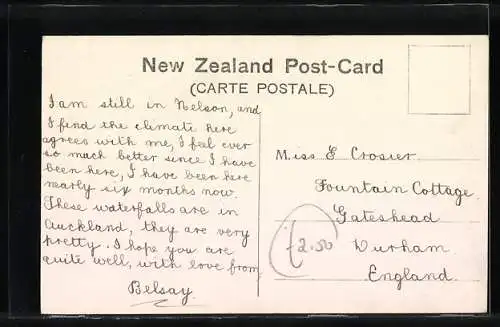 New Zealand Post-Card
(CARTE POSTALE)
I am still in Nelson, and
I find the climate here
agrees with me, I feel ever
so much better since I have
been here, I have been here
nearly six months now.
These waterfalls are in
Auckland, they are very
pretty. I hope you are
quite well, with love from
Belsay.
Miss E Crosier.
Fountain Cottage
Gateshead
Durham
England.
£2.50